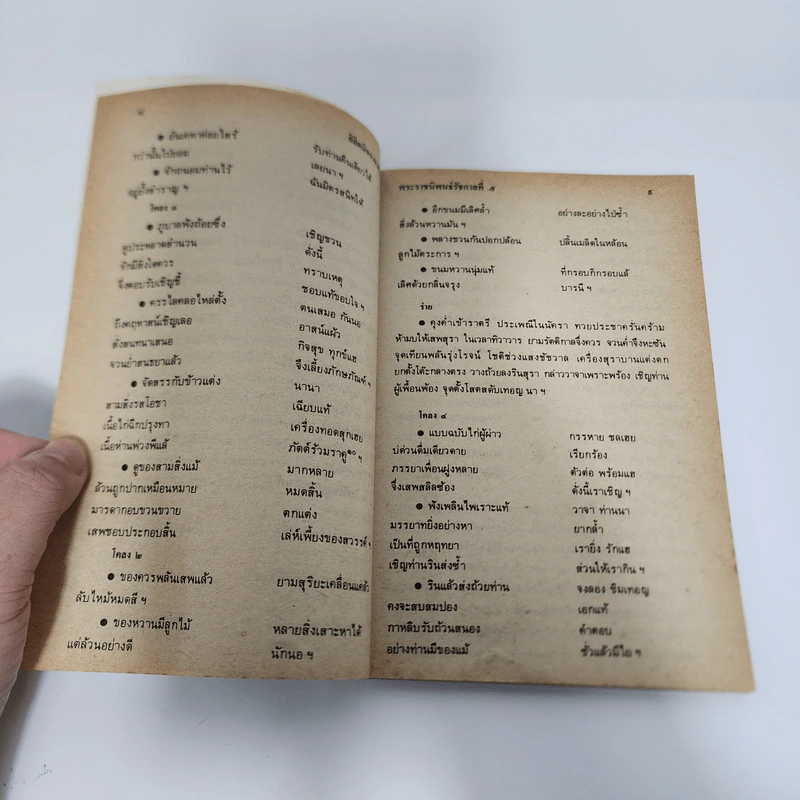 ๘
ลิลิต
● อันเหาหาค่อยไสร้ รับท่านคืนเดียวได้
กว่านั้นไป่ยอม เลยนา ฯ
● จักถนอมท่านไว้ ฉันมิตรสนิทได้
อยู่ยั้งสำราญ ฯ
โคลง ๔
● ภูบาลฟังถ้อยซึ่ง เชิญชวน
ดูประพลาดสำนวน ดั่งนี้
จักมีสิ่งใดควร ทราบเหตุ
จึ่งตอบรับเชิญชี้ ขอบแท้ขอบใจ ฯ
● ครรไลคลอไหล่ตั้ง ตนเสมอ กันนอ
ถึงคฤหาสน์เชิญเลอ อาสน์แผ้ว
สั่งสนทนาเสนอ กิจสุข ทุกข์แฮ
จวนย่ำสนธยาแล้ว จึ่งเลี้ยงภักษภัณฑ์ ฯ
● จัดสรรกับข้าวแต่ง นานา
สามสิ่งรสโอชา เฉียบแท้
เนื้อไก่ฉีกปรุงทา เครื่องทอดสุกเฮย
เนื้อห่านพ่วงพีแล้ ภัตต์ร้วมราดู๑๐ ฯ
● ดูของสามสิ่งแม้ มากหลาย
ล้วนถูกปากเหมือนหมาย หมดสิ้น
มารดากอบขวนขวาย ตกแต่ง
เสพชอบประกอบลิ้น เล่ห์เพี้ยงของสวรรค์ ฯ
โคลง ๒
● ของควรพลันเสพแล้ว ยามสุริยะเคลื่อนแคล้ว
ลับไหม้หมดสี ฯ
● ของหวานมีลูกไม้ หลายสิ่งเสาะหาได้
แต่ล้วนอย่างดี นักนอ ฯ
พระราชนิพนธ์รัชกาลที่ ๕ ๙
● อีกขนมมีเลิศล้ำ อย่างละอย่างไป่ซ้ำ
สิ่งล้วนหวานมัน ฯ
● พลางชวนกันปอกปล้อน ปลิ้นเมล็ดในหล้อน
ลูกไม้ตระการ ฯ
● ขนมหวานนุ่มแท้ ที่กรอบก็กรอบแล้
เลิศด้วยกลิ่นจรุง บารนี ฯ
ร่าย
● คุงค่ำเช้าราตรี ประเพณีในนัครา ทวยประชาครันคร้าม
ห้ามบให้เสพสุรา ในเวลาทิวาวาร ยามรัตติกาลจึ่งควร จวนค่ำจึ่งหะซัน
จุดเทียนพลันรุ่งโรจน์ โชติช่วงแสงชัชวาล เครื่องสุราบานแต่งตก
ยกตั้งโต๊ะกลางตรง วางถ้วยลงรินสุรา กล่าววาจาเพราะพร้อง เชิญท่าน
ผู้เพื่อนพ้อง จุดตั้งโสตสดับเทอญ นา ฯ
โคลง ๔
● แบบฉบับไก่ผู้ผ่าว กรรหาย ชลเฮย
บ่ด่วนดื่มเดียวดาย เรียกร้อง
ภรรยาเพื่อนฝูงหลาย ตัวต่อ พร้อมแฮ
จึ่งเสพสลิลซ้อง ดั่งนี้เราเชิญ ฯ
● ฟังเพลินไพเราะแท้ วาจา ท่านนา
มรรยาทยิ่งอย่างหา ยากล้ำ
เป็นที่ถูกหฤทยา เรายิ่ง รักแฮ
เชิญท่านรินส่งซ้ำ ส่วนให้เรากิน ฯ
● รินแล้วส่งถ้วยท่าน จงลอง ชิมเทอญ
คงจะสบสมปอง เอกแท้
กาหลิบรับถ้วนสนอง คำตอบ
อย่างท่านมีของแม้ ชั่วแล้วมีไย ฯ